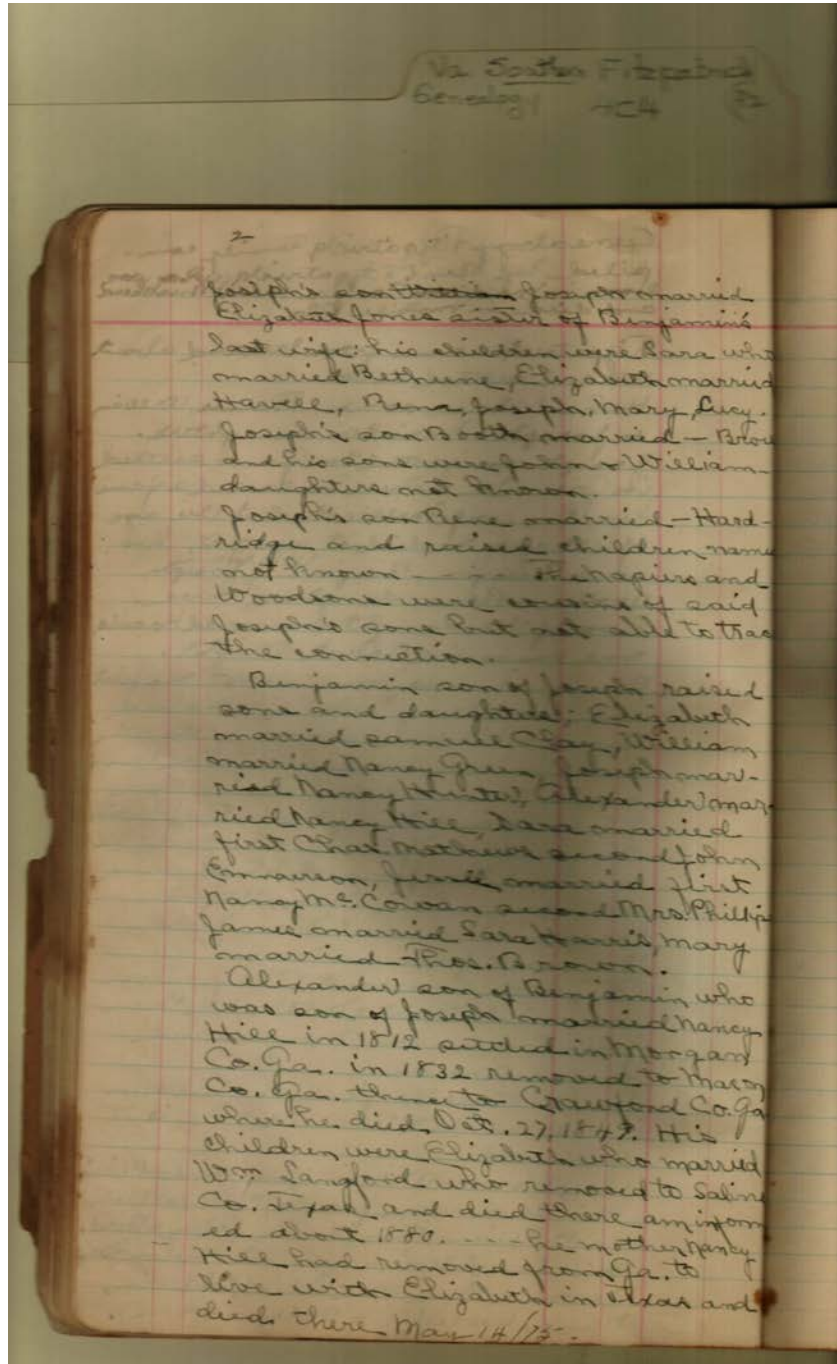 Va Southern Fitzpatrick
Genealogy HC4 P2
2
Joseph's son William Joseph married
Elizabeth Jones sister of Benjamin's
last wife: his children were Sara who
married Bethune, Elizabeth married
Harvell, Rena, Joseph, Mary, Lucy.
Joseph's son Booth married – Brow
and his sons were John & William –
daughters not known.
Joseph's son Rene married – Hard-
ridge and raised children name
not known – – – The Napiers and
Woodsons were cousins of said
Joseph's sons but not able to trac
the connection.
Benjamin son of Joseph raised
sons and daughters: Elizabeth
married Samuel Clay, William
married Nancy Green, Joseph mar-
ried Nancy Hunter, Alexander mar-
ried Nancy Hill, Sara married
first Chas. Mathews second John
Emmerson, married first
Nancy Mc. Cowan second Mrs. Phillips
James married Sara Harris, Mary
married Thos. Brown.
Alexander son of Benjamin who
was son of Joseph married Nancy
Hill in 1812 settled in Morgan
Co. Ga. in 1832 removed to Macon
Co. Ga. thence to Crawford Co. Ga
where he died Oct. 27, 1847. His
children were Elizabeth who married
Wm Langford who removed to Saline
Co. Texas and died there am inform
ed about 1880. – – – – he mother Nancy
Hill had removed from Ga. to
live with Elizabeth in Texas and
died there May 14/75.